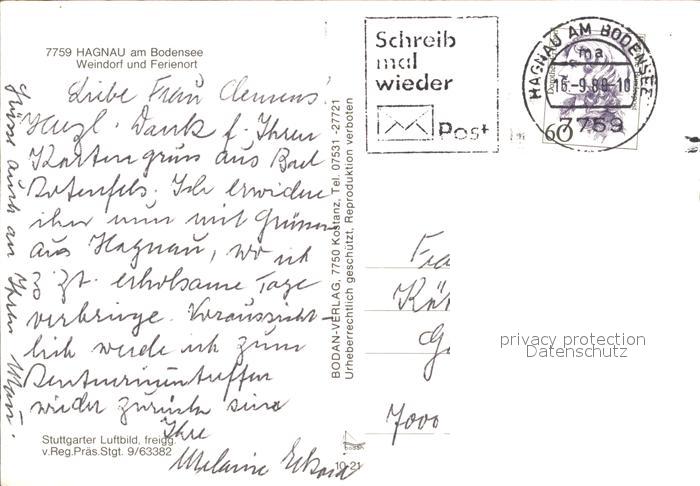 7759 HAGNAU am Bodensee
Weindorf und Ferienort
Liebe Frau Clemens!
Herzl. Dank f. Ihren
Kartengruss aus Bad
Rotenfels. Ich erwidere
ihn nun mit Grüssen
aus Hagnau, wo ich
z. Zt. erholsame Tage
verbringe. Voraussicht-
lich werde ich zum
Rentnerinnentreffen
wieder zurück sein
Ihre
Melanie
Grüsse auch an Ihren Mann.
Stuttgarter Luftbild, freigg.
v.Reg.Präs.Stgt. 9/63382
BODAN-VERLAG, 7750 Kostanz, Tel. 07531-27721
Urheberrechtlich geschützt, Reproduktion verboten
10-21
Schreib
mal
wieder
Post
HAGNAU AM BODENSEE
ma
16.-9.89-10
7759
60
Fra
Kät
G
7000
privacy protection
Datenschutz